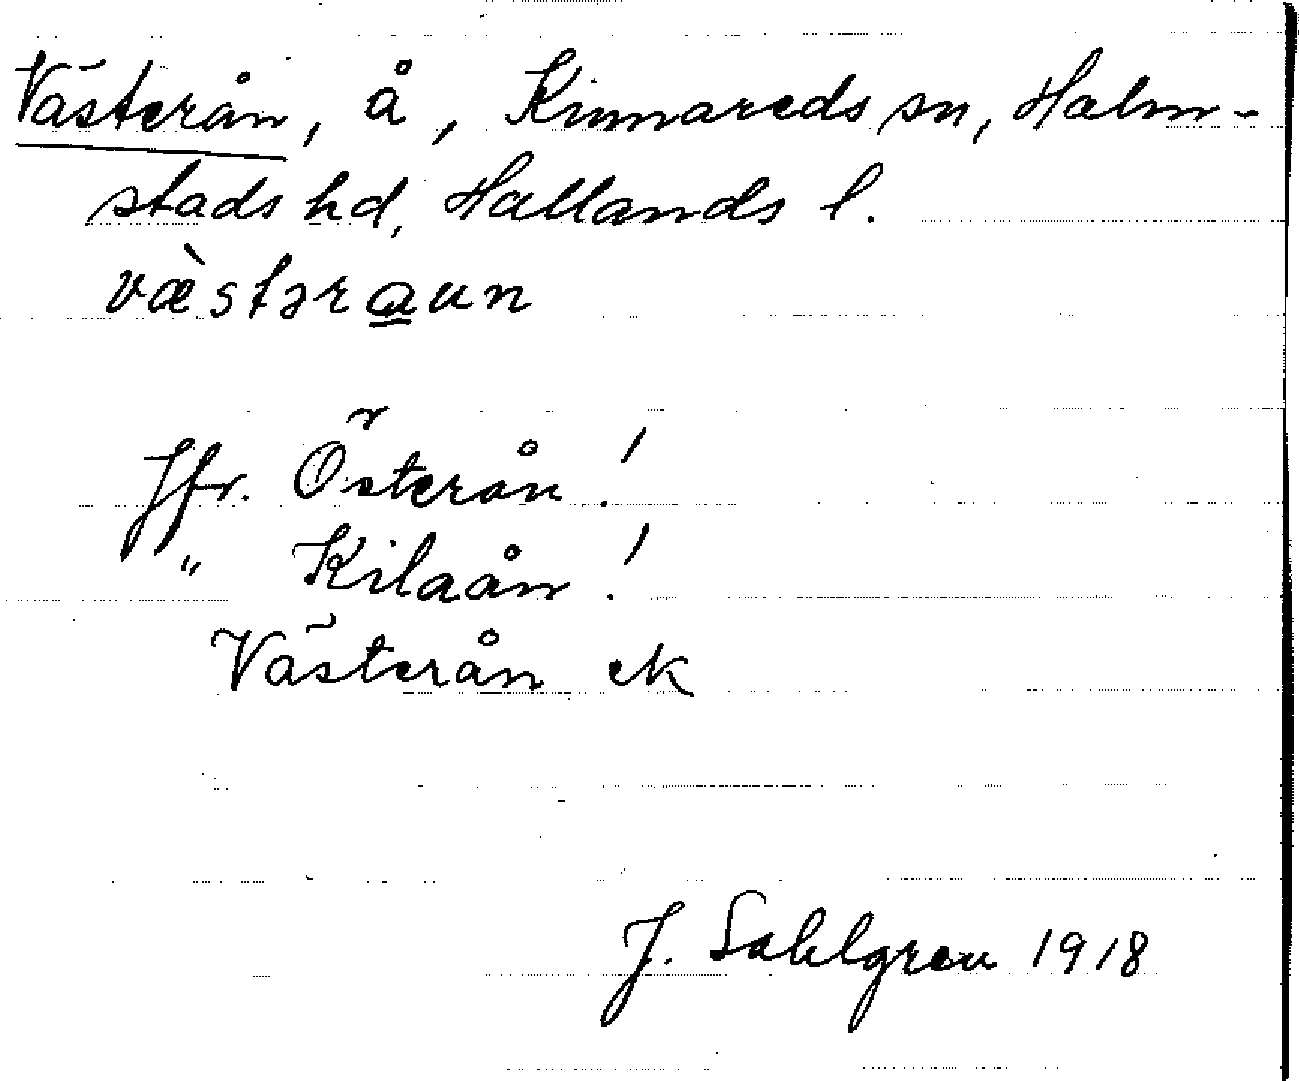 Västerån, å, Kinnareds sn, Halm-
stads hd, Hallands l.
væ̀stəra̳un
Jfr. Österån!
" Kilaån!
Västerån ek
J. Sahlgren 1918